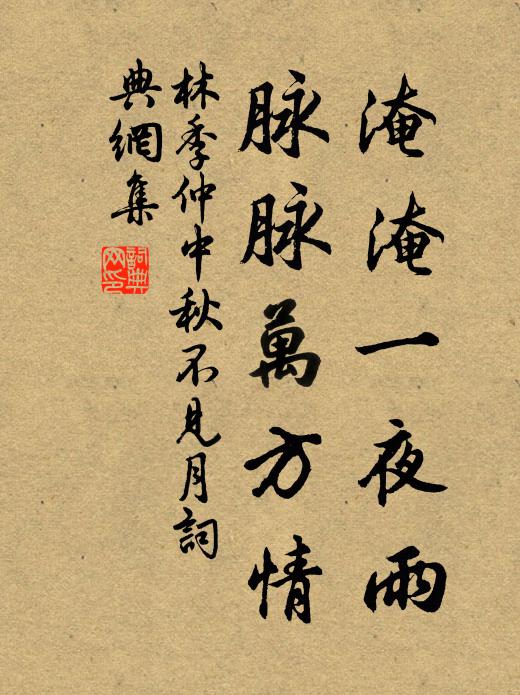 淹淹一夜雨
脉脉萬方情
林季仲中秋不見月詞
典網集
詞典網印